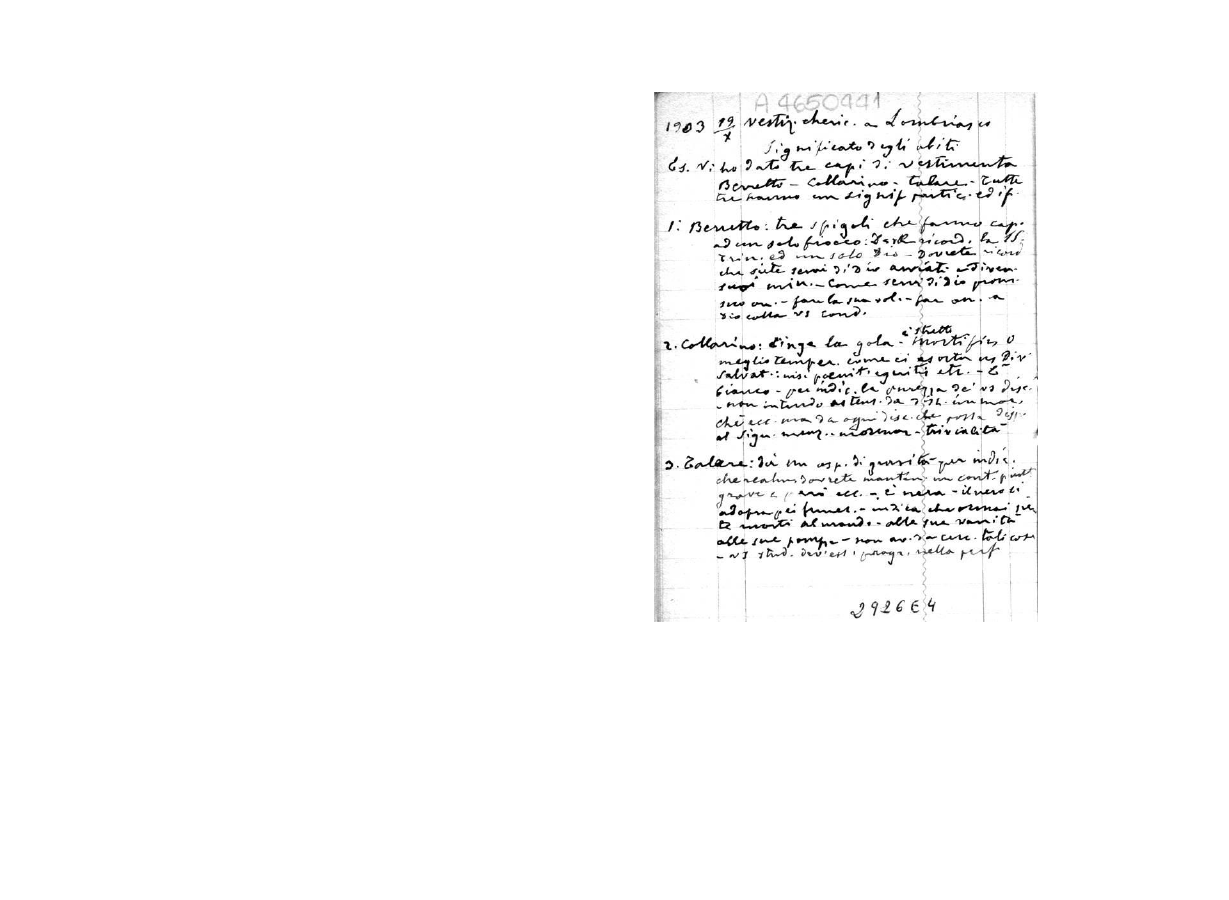 A 4650441
1903 19/X Vestiz. cheric. a Lombriasco
Significato degli abiti
Es. Vi ho dato tre capi di vestimenta
Berretto - Collarino - talare - Tutte
tre hanno un signif partic. ed if.
1: Berretto: tre spigoli che fanno capo
ad un solo fiocco: ricord. la SS.
Trin. ed un solo Dio - Dovrete ricord
che siete servi di Dio avviati a diven.
suoi min. - Come servi di Dio prom.
suo on. - fare la sua vol. - far on. a
Dio colla vs cond.
è stretto
2. Collarino: cinge la gola - mortific o
meglio temper. come ci esorta ns Div
Salvat.: nisi poenit. egeritis etc. - È
bianco - per indic. la purezza de' vs disc.
- non intendo
ma da ogni disc. che possa disp.
al Sign. menz. - mormor - trivialità
3. Talare: dà un asp. di gravità per indic.
che realm dovrete manten. un cont. piutt
grave e ecc. - è nera - il nero si
adopra pei funer. - indica che ormai sie
te morti al mondo - alle sue vanità
alle sue pompe - non av. da cerc. tali cose
- vs stud. dev'ess. progr. nella perf
2926 E 4